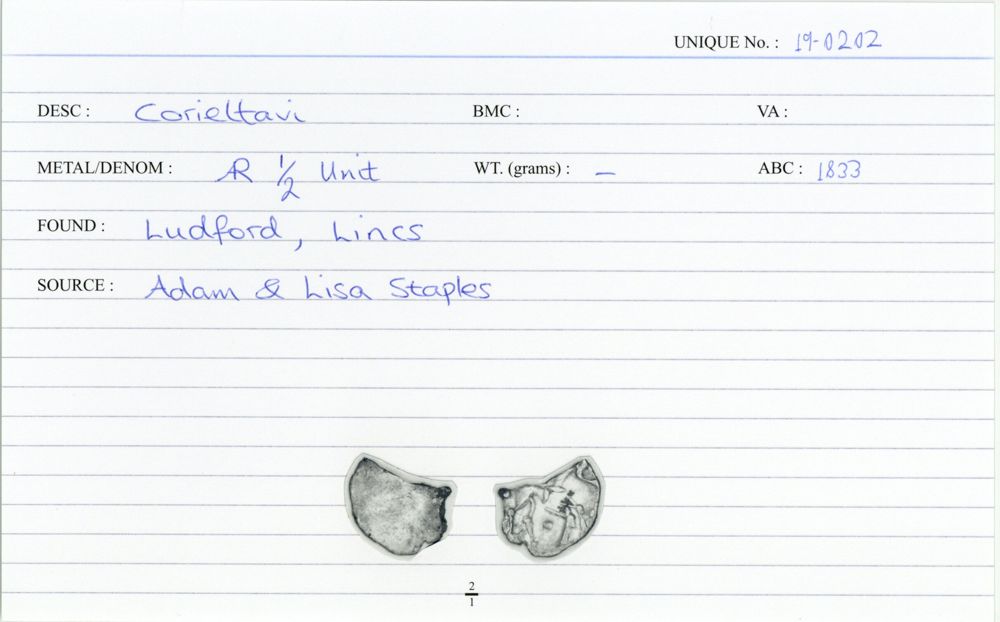 UNIQUE No. : 19-0202
DESC : Corieltavi BMC : VA :
METAL/DENOM : AR 1/2 Unit WT. (grams) : – ABC : 1833
FOUND : Ludford, Lincs
SOURCE : Adam & Lisa Staples
2/1